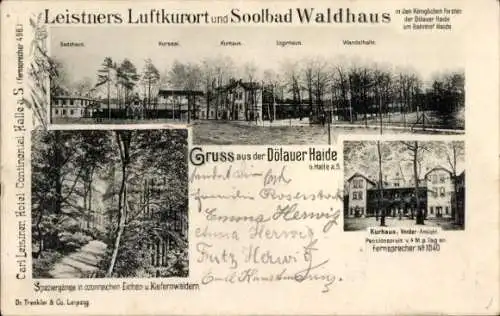 Leistners Luftkurort und Soolbad Waldhaus
in den Königlichen Forsten
der Dölauer Haide
am Bahnhof Haide
Badehaus. Kursaal. Kurhaus. Jägerhaus. Wandelhalle.
Carl Leistner, Hotel Continental, Halle a. S. (Fernsprecher 496.)
Gruss aus der Dölauer Haide
b. Halle a. S.
sendet
Familien
Emma Herwig
Herwig
Fritz Herwig
Emil
Kurhaus, Vorder-Ansicht.
Pensionspreis v. 4 M. p. Tag an
Fernsprecher No. 1040
Spaziergänge in ozonreichen Eichen- u. Kiefernwäldern.
Dr. Trenkler & Co. Leipzig.